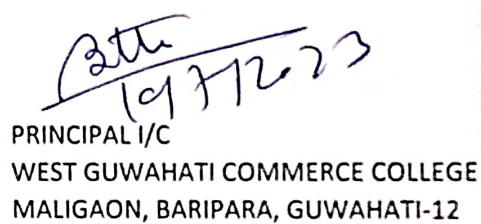 19/7/2023
PRINCIPAL I/C
WEST GUWAHATI COMMERCE COLLEGE
MALIGAON, BARIPARA, GUWAHATI-12